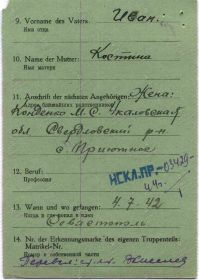 9. Vorname des Vaters: Иван
Имя отца
10. Name der Mutter: Костина
Имя матери
11. Anschrift der nächsten Angehörigen: Жена:
Адрес ближайших родственников
Конденко М.С. Чкаловская
обл Свердловский р-н
с. Приютное
12. Beruf:
Профессия
ИСКЛ.ПР-03479-
13. Wann und wo gefangen: 4.7.42
Когда и где взят в плен
Севастополь
14. Nr. der Erkennungsmarke des eigenen Truppenteils:
Matrikel-Nr.
Номер в собственной части